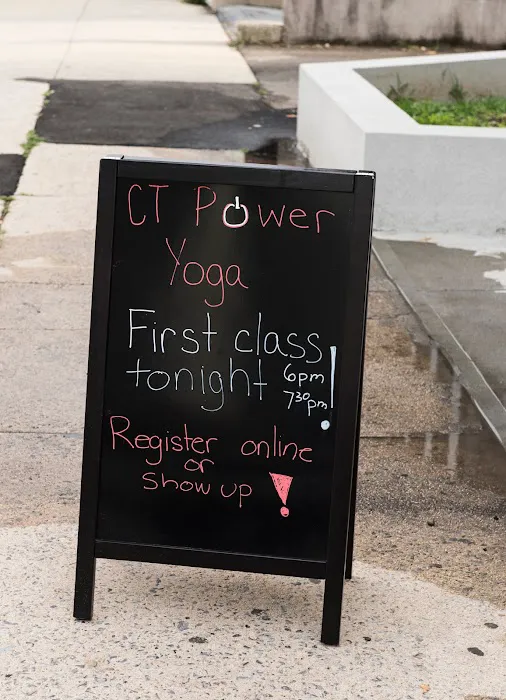 CT Power
Yoga
First class
tonight!
6pm
730pm
Register online
or
show up!